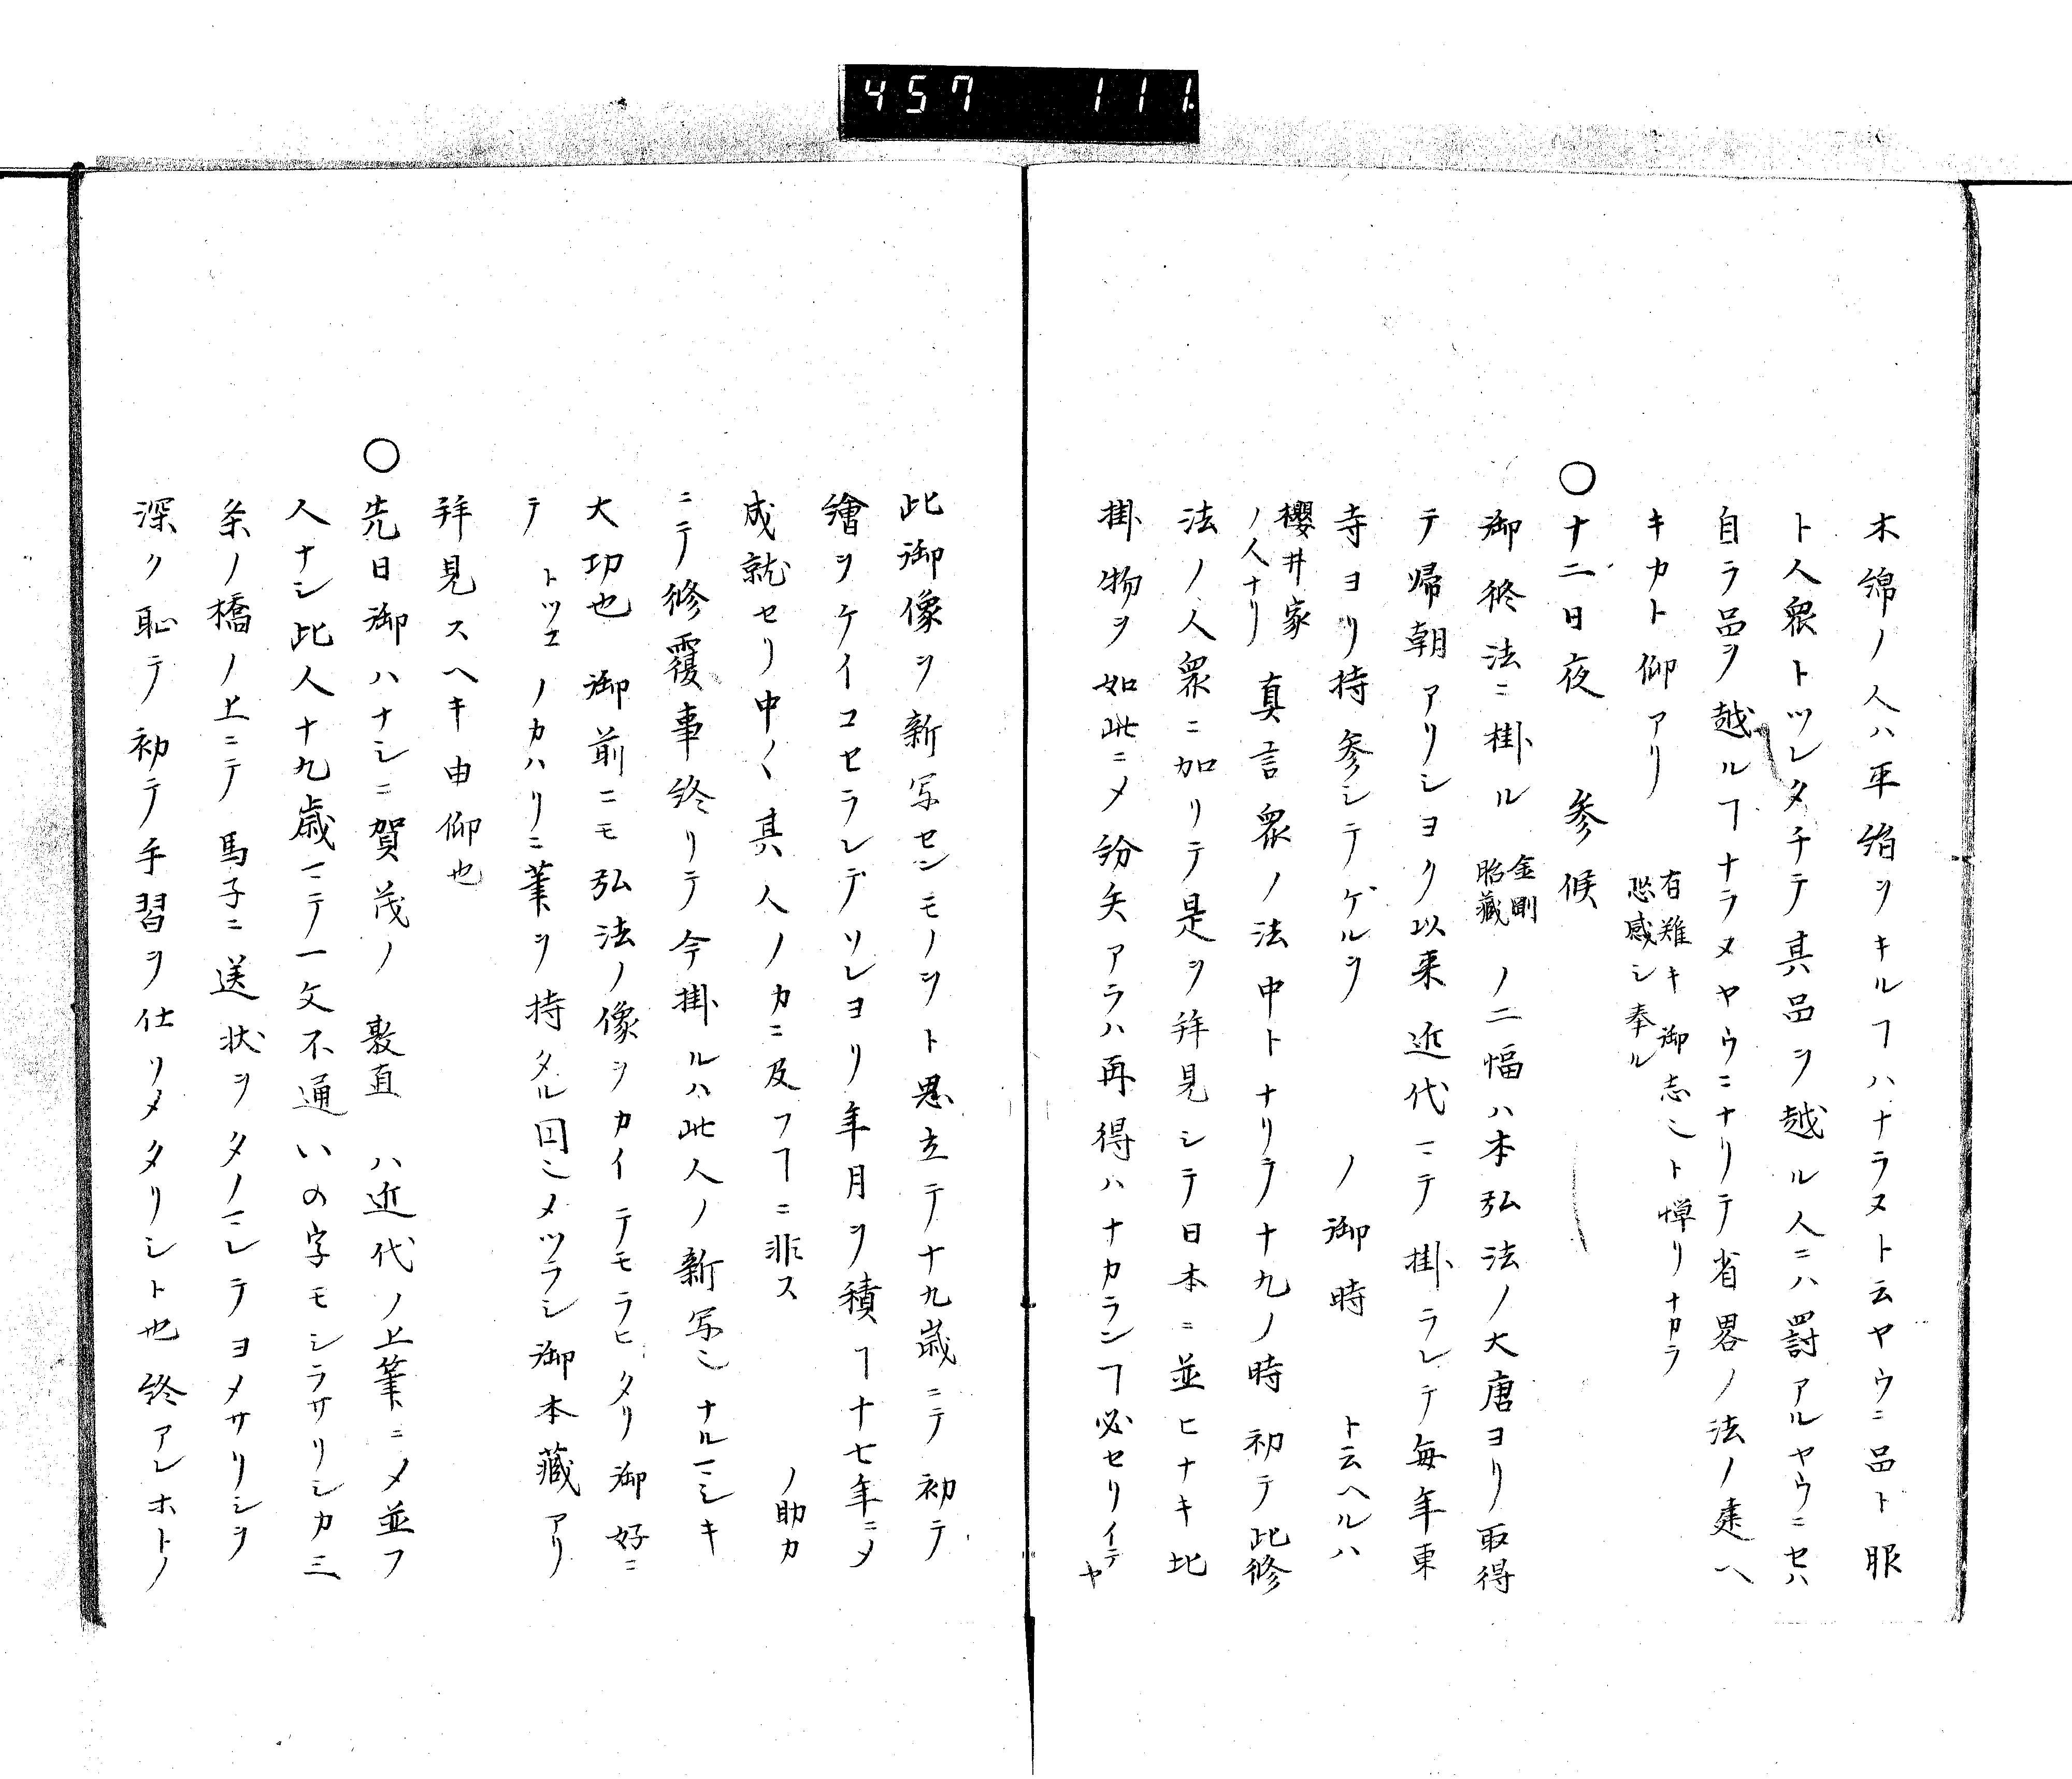 457 111
木綿ノ人ハ平絈ヲキルヿハナラヌト云ヤウニ品ト服
ト人衆トツレタチテ其品ヲ越ル人ニハ罸アルヤウニセハ
自ラ品ヲ越ルヿナラヌヤウニナリテ省畧ノ法ノ建ヘ
キカト仰アリ 有難キ御志ニト憚リナカラ
恐感シ奉ル
○十二日夜 参候
御修法ニ掛ル 金剛
胎藏 ノ二幅ハ本弘法ノ大唐ヨリ取得
テ帰朝アリシヨク以来近代ニテ掛ラレテ毎年東
寺ヨリ持参シテゲルヲ ノ御時 ト云ヘルハ
櫻井家
ノ人ナリ 真言衆ノ法中トナリテ十九ノ時初テ此修
法ノ人衆ニ加リテ是ヲ拜見シテ日本ニ並ヒナキ此
掛物ヲ如此ニメ紛矢アラハ再得ハナカランヿ必セリイテヤ
此御像ヲ新写センモノヲト思立テ十九歳ニテ初テ
繪ヲケイコセラレデソレヨリ年月ヲ積ヿ十七年ニメ
成就セリ中〱其人ノカニ及フヿニ非ス ノ助カ
ニテ修覆事終リテ今掛ルハ此人ノ新写ニナルヘシキ
大功也 御前ニモ弘法ノ像ヲカイテモラヒタリ御好ニ
テ トツエ ノカハリニ筆ヲ持タル図ニメツラシ御本藏アリ
拜見スヘキ由仰也
○先日御ハナシニ賀茂ノ 敦直 ハ近代ノ上筆ニメ並フ
人ナシ此人十九歳ニテ一文不通いの字モシラサリシカ三
条ノ橋ノ上ニテ馬子ニ送状ヲタノマレテヨメサリシヲ
深ク恥テ初テ手習ヲ仕リメタリシト也終アレホトノ